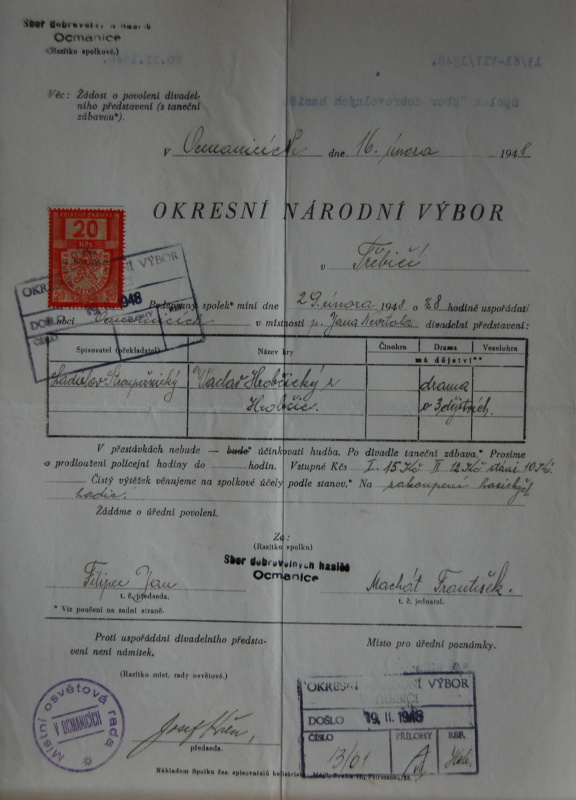 Sbor dobrovolných hasičů
Ocmanice
(Razítko spolkové.)
Věc: Žádost o povolení divadel-
ního představení (s taneční
zábavou*).
v Ocmanicích dne 16. února 1948
OKRESNÍ NÁRODNÍ VÝBOR
v Třebíči
KOLKOVÁ ZNÁMKA
20
Kčs
OKRESNÍ VÝBOR
DOŠLO 1948
ČÍSLO
Podepsaný spolek* míní dne 29. února 1948 o ½8 hodině uspořádati
v obci Ocmanicích v místnosti p. Jana divadelní představení:
Spisovatel (překladatel) Název hry Činohra Drama Veselohra
má dějství**
Ladislav Stroupežnický Václav Hrobčický z drama
Hrobčic. o 3 dějstvích.
V přestávkách nebude – bude* účinkovati hudba. Po divadle taneční zábava.* Prosíme
o prodloužení policejní hodiny do hodin. Vstupné Kčs I. 15 Kč II 12 Kč stání 10 Kč.
Čistý výtěžek věnujeme na spolkové účely podle stanov.* Na zakoupení hasičských
hadic.
Žádáme o úřední povolení.
Za:
(Razítko spolku)
Sbor dobrovolných hasičů
Ocmanice
Filipec Jan Machát František.
t. č. předseda. t. č. jednatel.
* Viz poučení na zadní straně.
Proti uspořádání divadelního předsta-
vení není námitek.
Místo pro úřední poznámky.
(Razítko míst. rady osvětové.)
Místní osvětová rada
V OCMANICÍCH
Josef
předseda.
OKRESNÍ NÁRODNÍ VÝBOR
DOŠLO 19. II. 1948
ČÍSLO PŘÍLOHY REF.
13/61
Nákladem Spolku čes. spisovatelů beletristů Máj, Praha